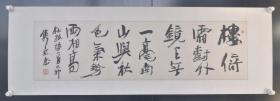 樓倚
霜樹外
鏡天無
一毫南
山與秋
色氣勢
兩相高
杜牧詩